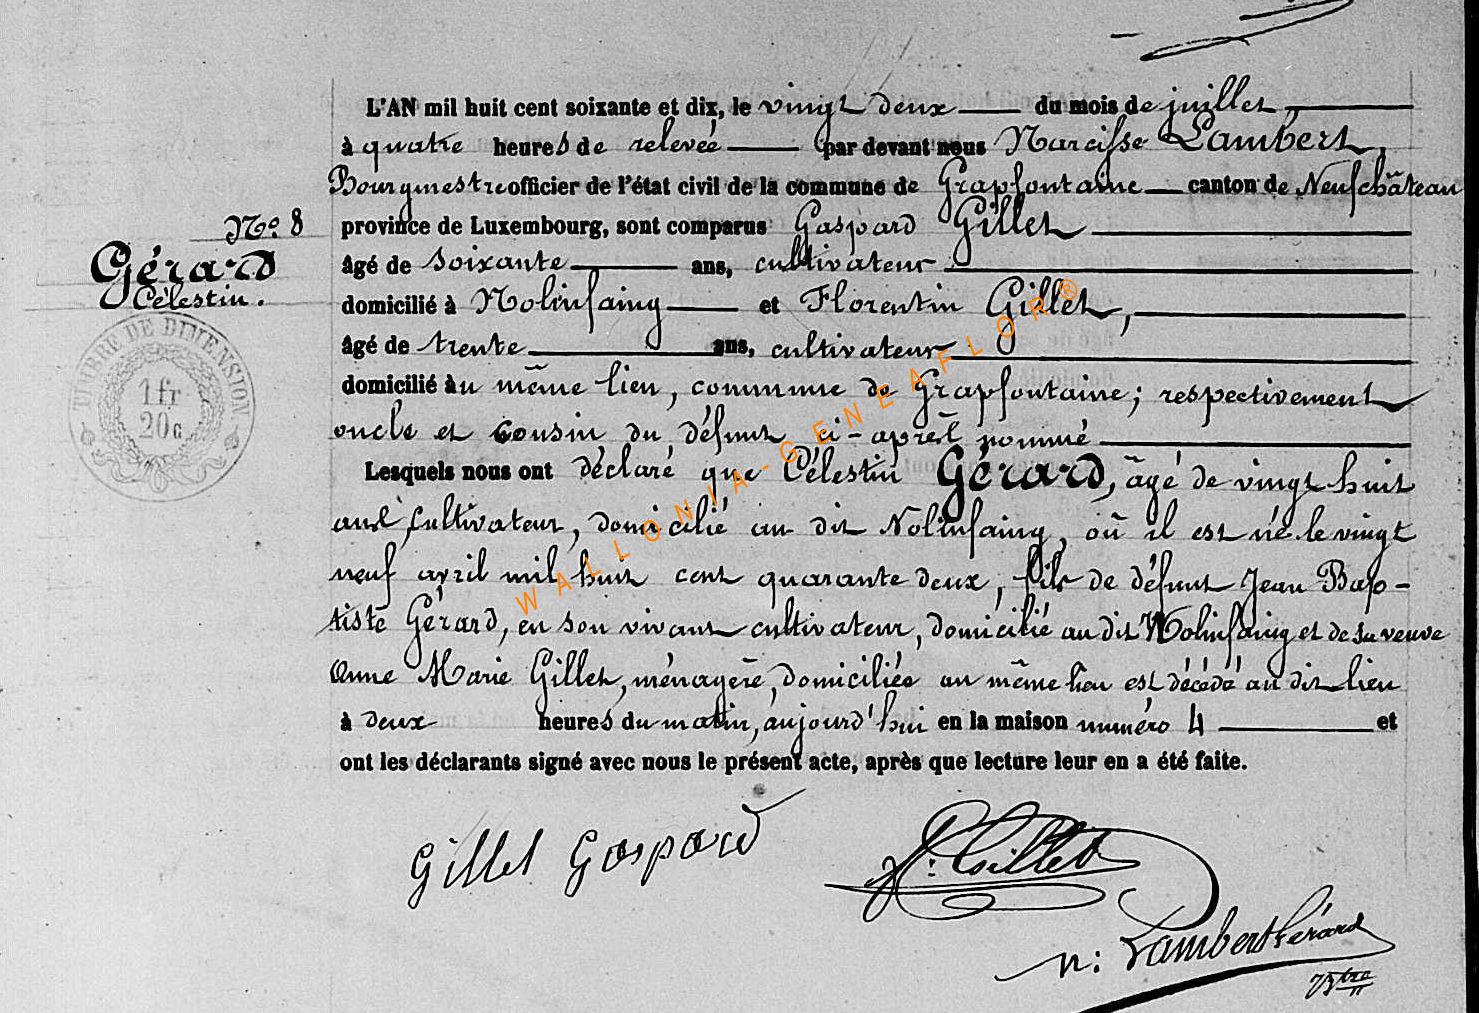 L'AN mil huit cent soixante et dix, le vingt deux du mois de juillet
à quatre heures de relevée par devant nous Narcisse Lambert,
Bourgmestre officier de l'état civil de la commune de Grapfontaine canton de Neufchâteau
No 8
province de Luxembourg, sont comparus Gaspard Gillet
Gérard
âgé de soixante ans, cultivateur
Célestin.
domicilié à Nolinfaing et Florentin Gillet,
âgé de trente ans, cultivateur
domicilié au même lieu, commune de Grapfontaine; respectivement
oncle et cousin du défunt ci-après nommé
Lesquels nous ont déclaré que Célestin Gérard, âgé de vingt huit
ans, cultivateur, domicilié au dit Nolinfaing, où il est né le vingt
neuf avril mil huit cent quarante deux, fils de défunt Jean Bap-
tiste Gérard, en son vivant cultivateur, domicilié au dit Nolinfaing et de sa veuve
Anne Marie Gillet, ménagère, domiciliée au même lieu est décédé au dit lieu
à deux heures du matin, aujourd'hui en la maison numéro 4 et
ont les déclarants signé avec nous le présent acte, après que lecture leur en a été faite.
TIMBRE DE DIMENSION
1fr
20c
WALLONIA-GENEAFLOR®
Gillet Gaspard
f: Gillet
N: Lambert Gérard
Btre